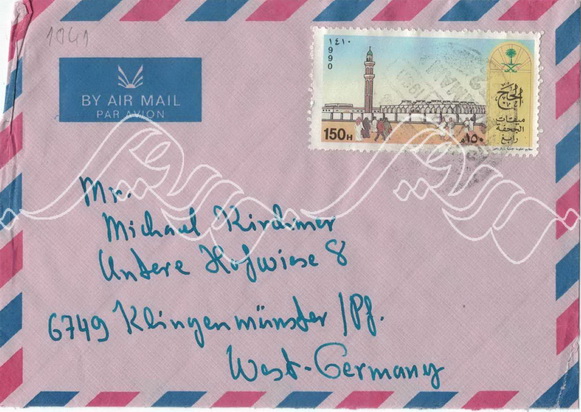 1041
BY AIR MAIL
PAR AVION
١٤١٠
1990
الحج
ميقات
الجحفة
رابغ
150H
١٥٠
Mr.
Michael Kirchmer
Untere Hofwiese 8
6749 Klingenmünster/Pf.
West-Germany